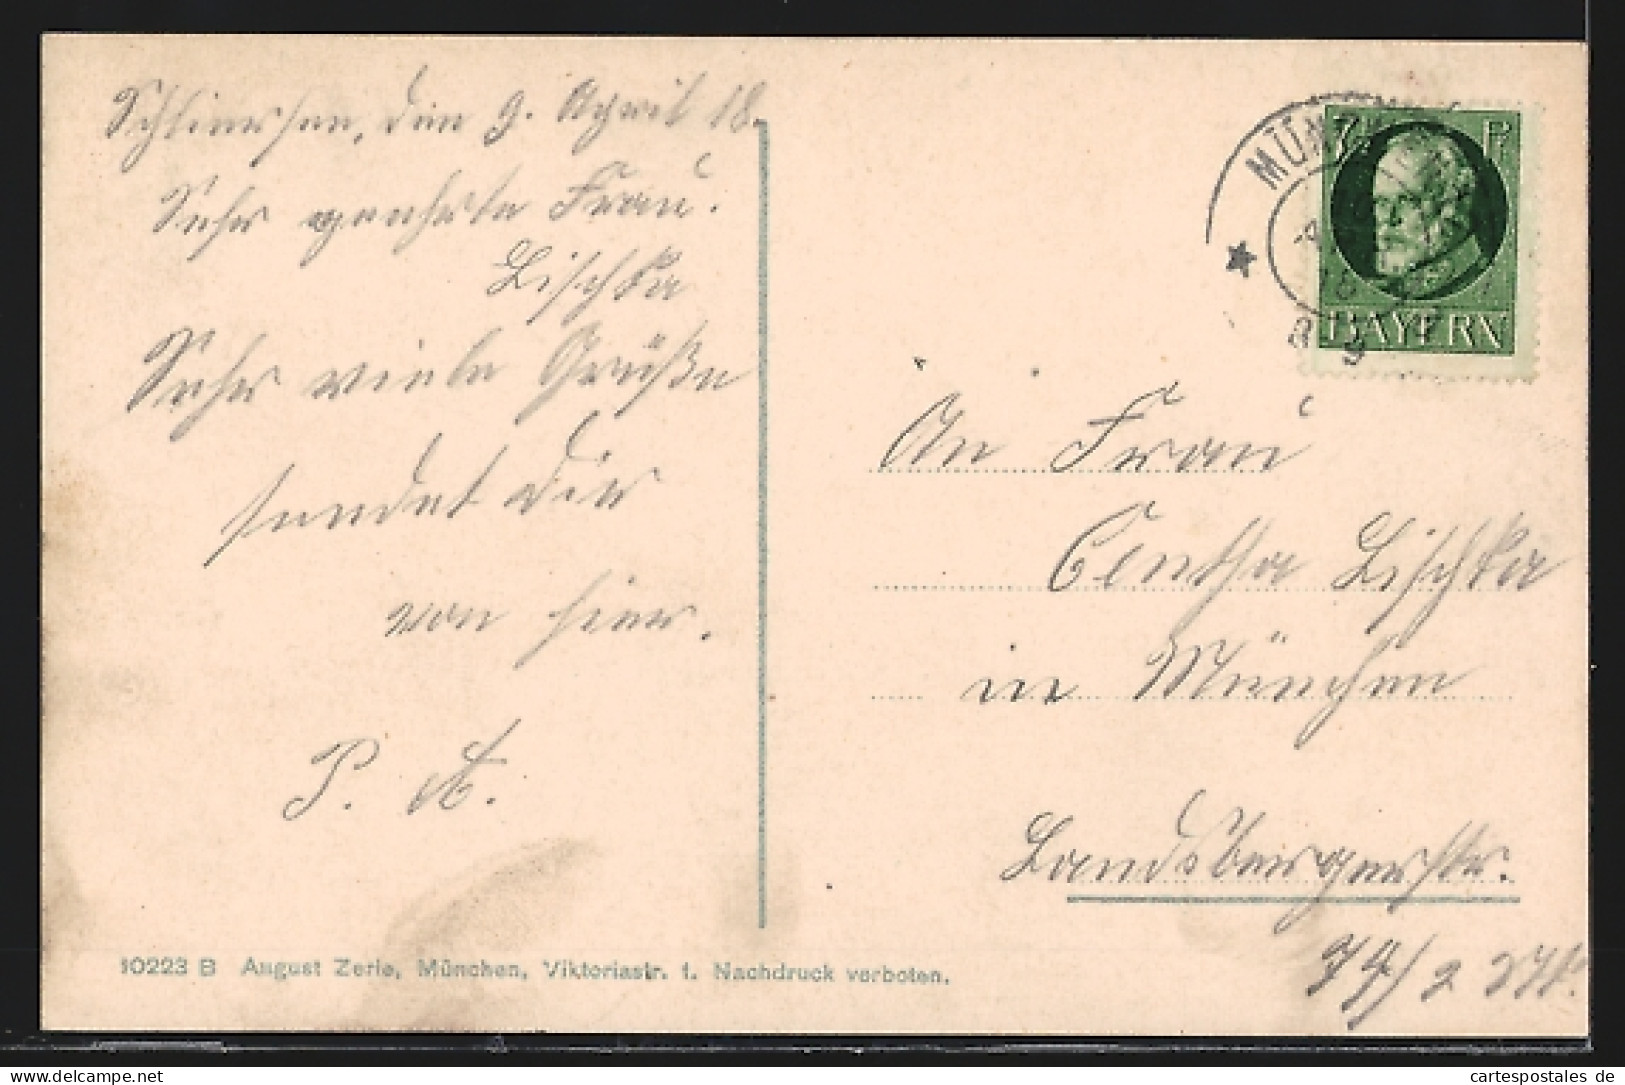 Schliersee, den 9. April 18.
Sehr geehrte Frau.
Lischka
Sehr viele Grüße
sendet dir
von hier.
P. A.
10223 B August Zerle, München, Viktoriastr. 1. Nachdruck verboten.
MÜN
BAYERN
An Frau
Centha Lischka
in München
Landsbergerstr.
74/2
delcampe.net
cartespostales de